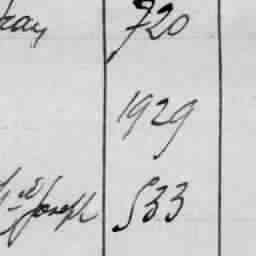 720
1929
Joseph 533